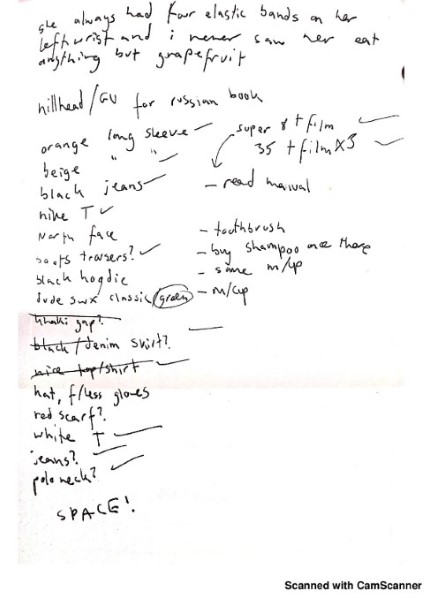 she always had four elastic bands on her
left wrist and i never saw her eat
anything but grapefruit
hillhead/GU for russian book
orange long sleeve
beige " "
black jeans
nike T
North face
trousers?
black hoodie
classic (green)
khaki gap?
black/denim skirt?
nice top/shirt
hat, f/less gloves
red scarf?
white T
jeans?
polo neck?
SPACE!
super 8 + film
35 + film x3
- read manual
- toothbrush
- buy shampoo once there
- some m/up
- m/cup
Scanned with CamScanner